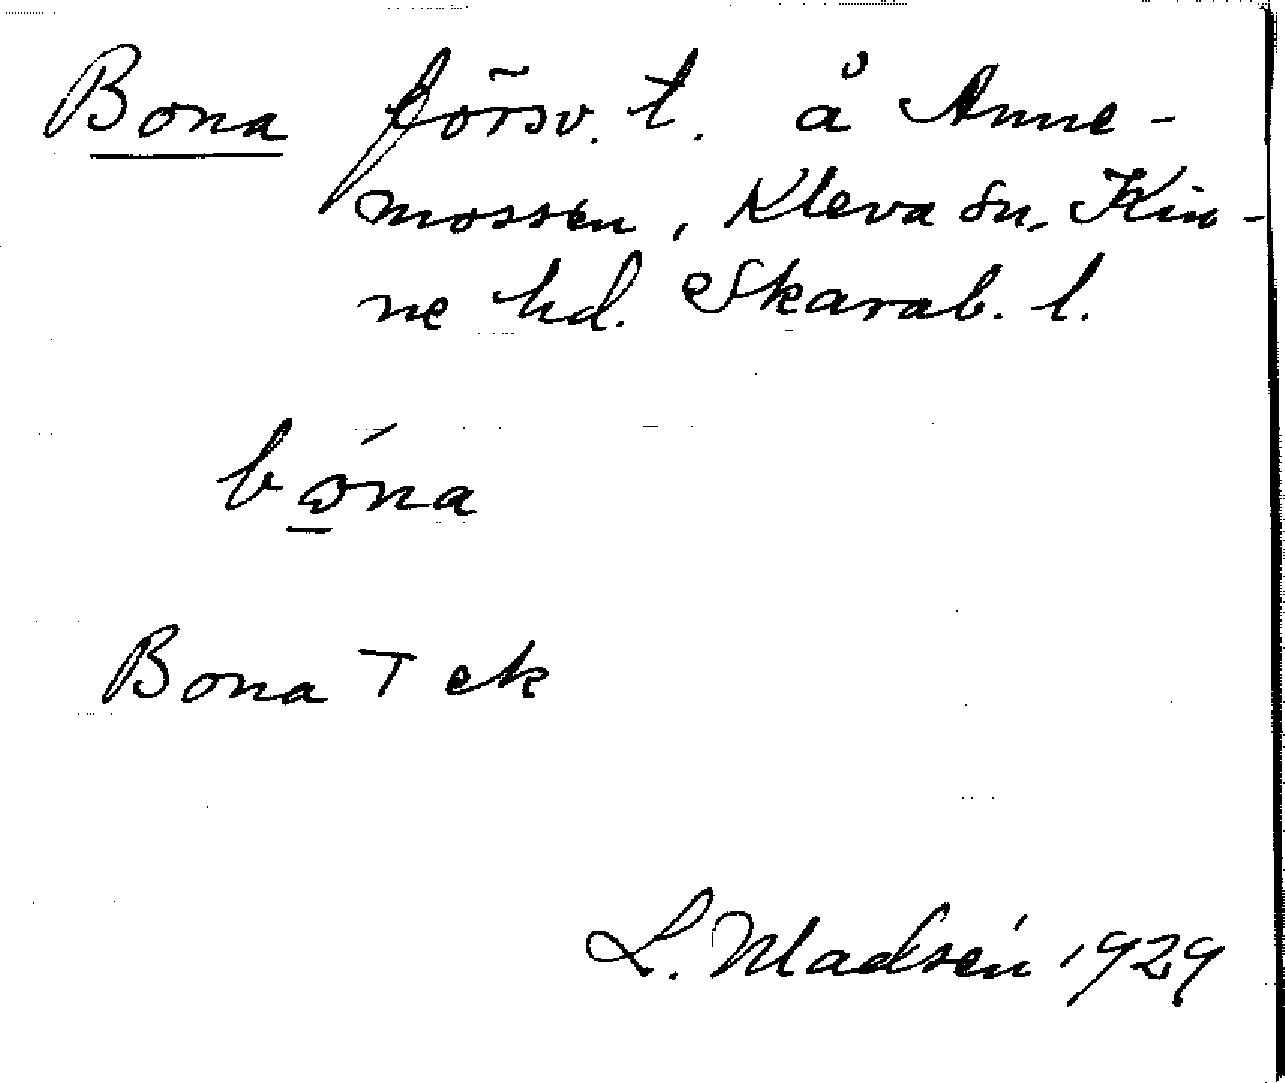 Bona försv. t. å Anne-
mossen, Kleva sn, Kin-
ne hd. Skarab. l.
bó̲na
Bona T ek
L. Madsén 1929